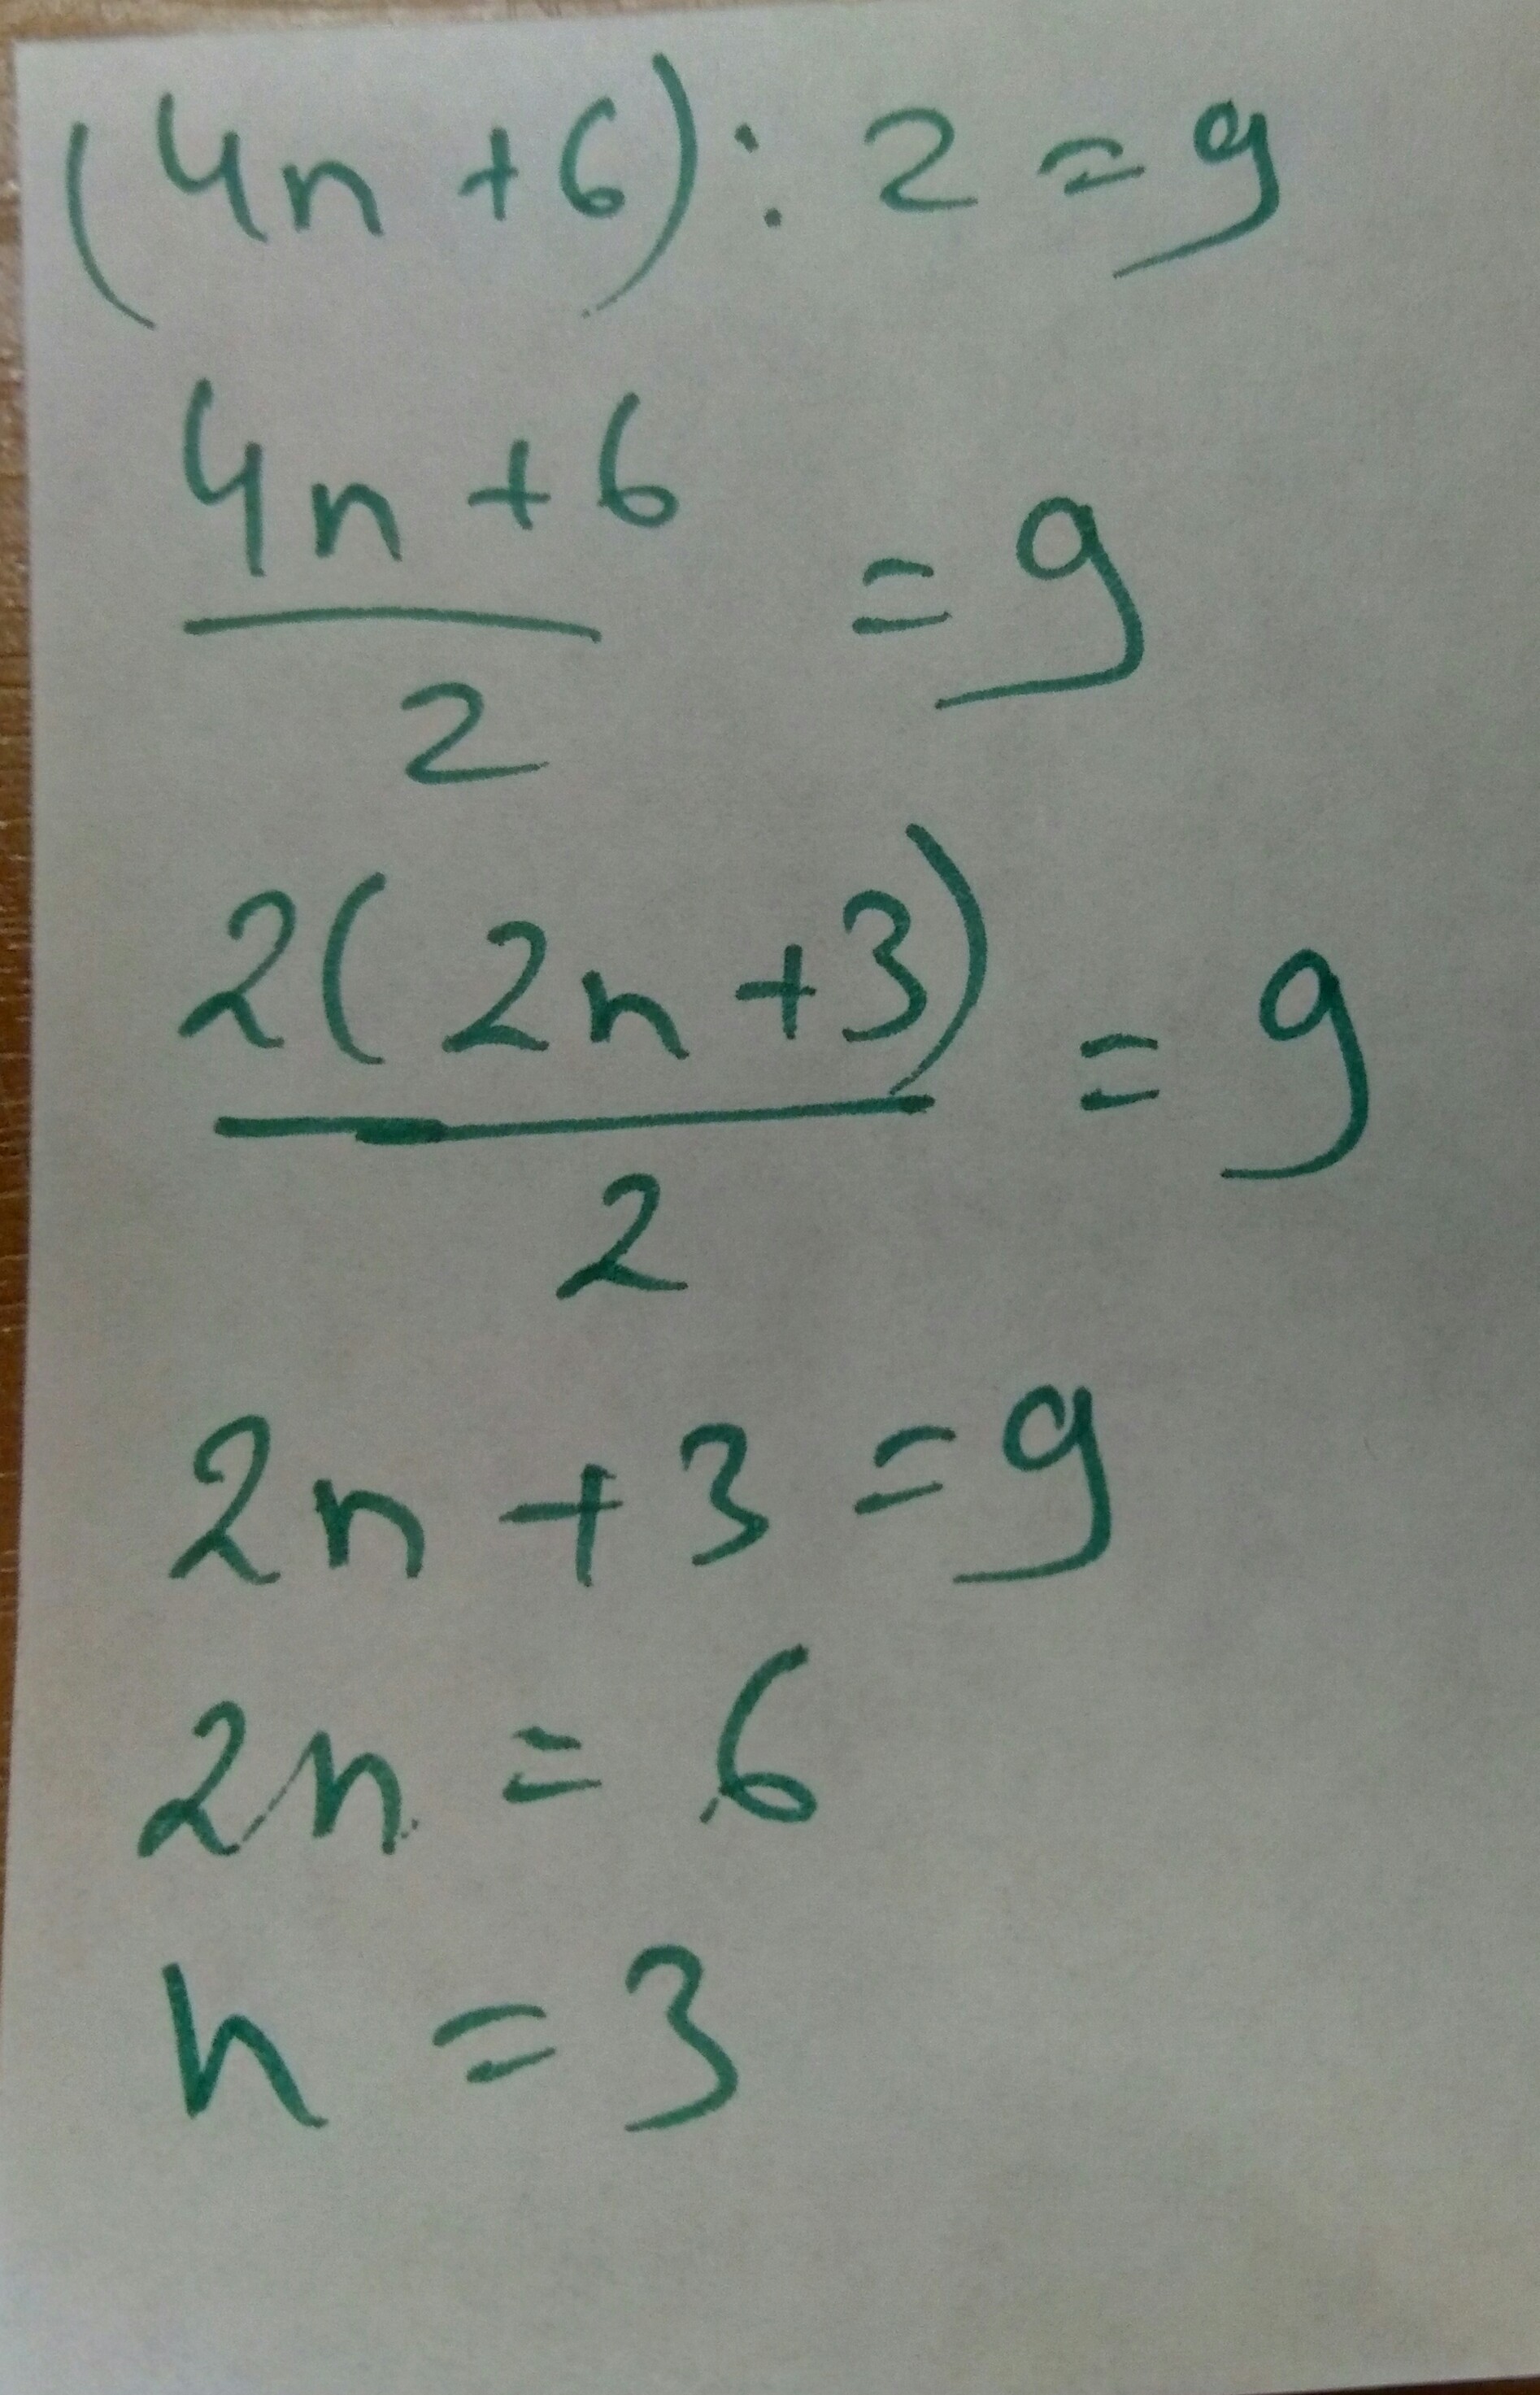 (4n + 6) : 2 = 9
4n + 6
= 9
2
2(2n + 3)
= 9
2
2n + 3 = 9
2n = 6
n = 3